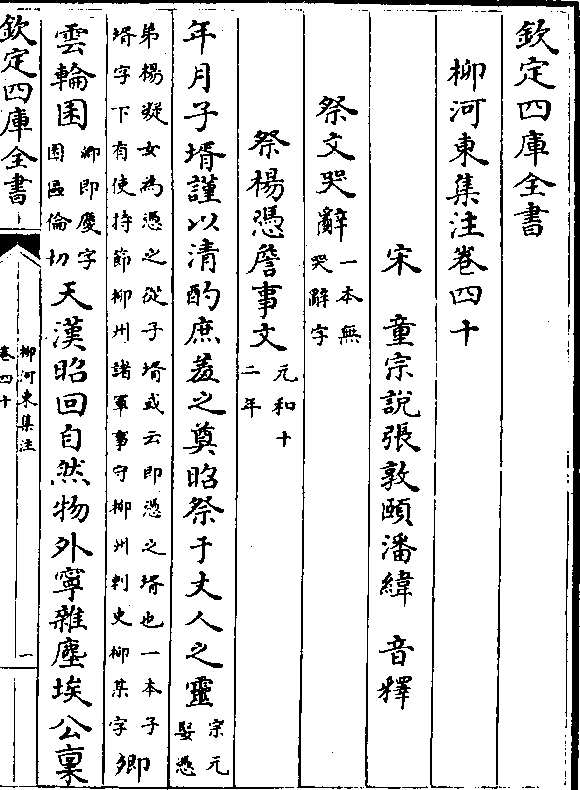 欽定四庫全書
柳河東集注卷四十
宋 童宗說張敦頤潘緯 音釋
祭文哭辭一本無哭辭字
祭楊憑詹事文元和十二年
年月子壻謹以清酌庶羞之奠昭祭于丈人之靈宗元娶憑
弟楊凝女為憑之從子壻或云即憑之壻也一本子壻字下有使持節柳州諸軍事守柳州刺史柳某字卿
雲輪囷卿即慶字囷區倫切天漢昭回自然物外寧雜塵埃公稟
欽定四庫全書
柳河東集注
卷四十
一